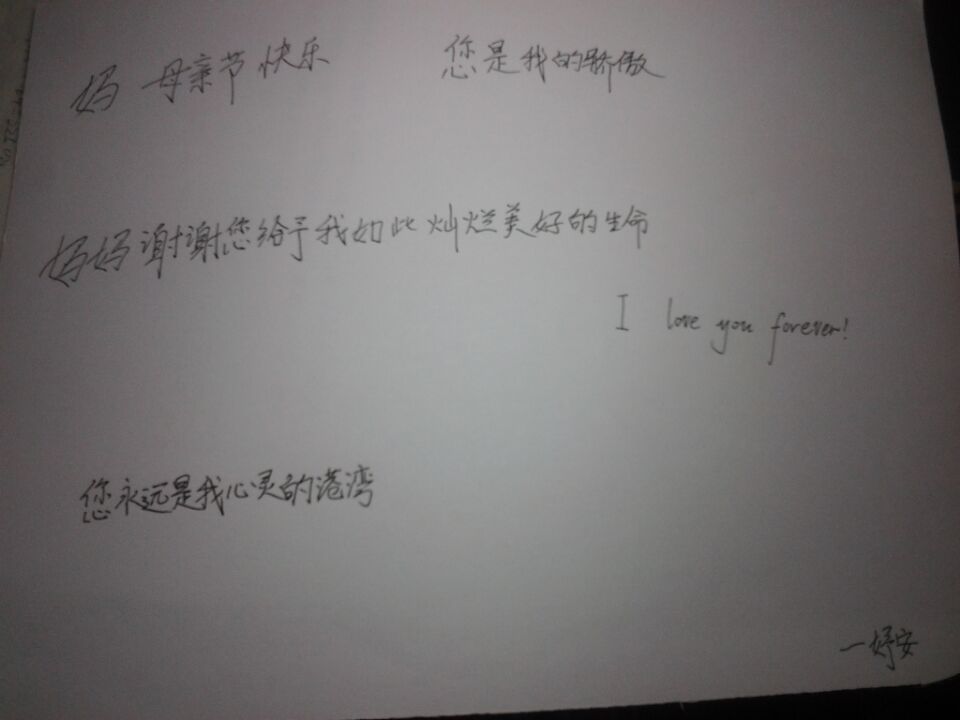 妈 母亲节快乐 您是我的骄傲
妈妈谢谢您给予我如此灿烂美好的生命
I love you forever!
您永远是我心灵的港湾
一妤安